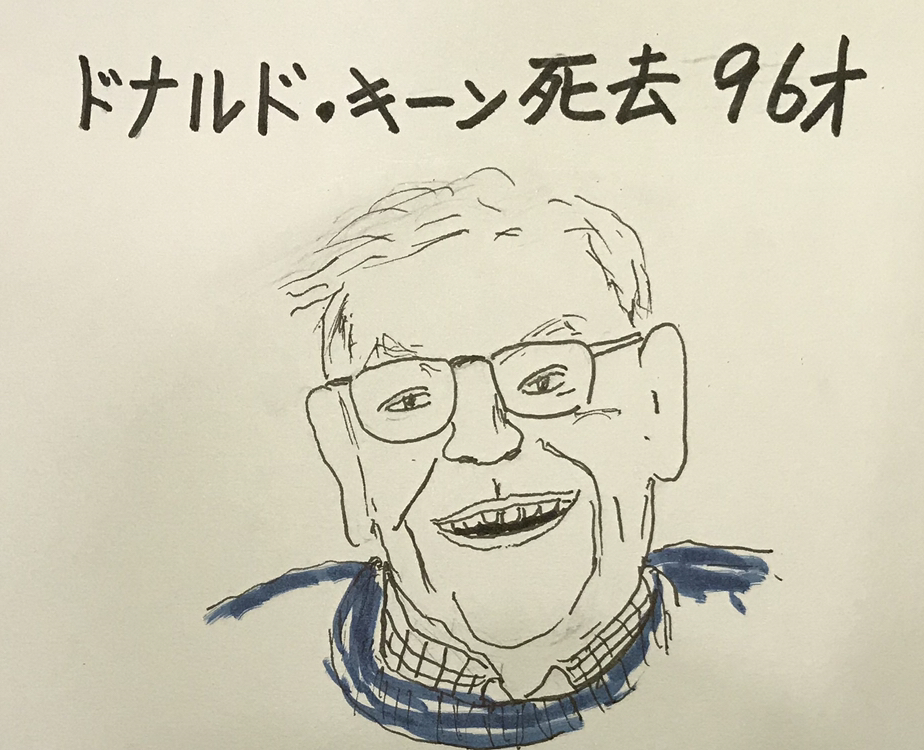 ドナルド・キーン死去 96才